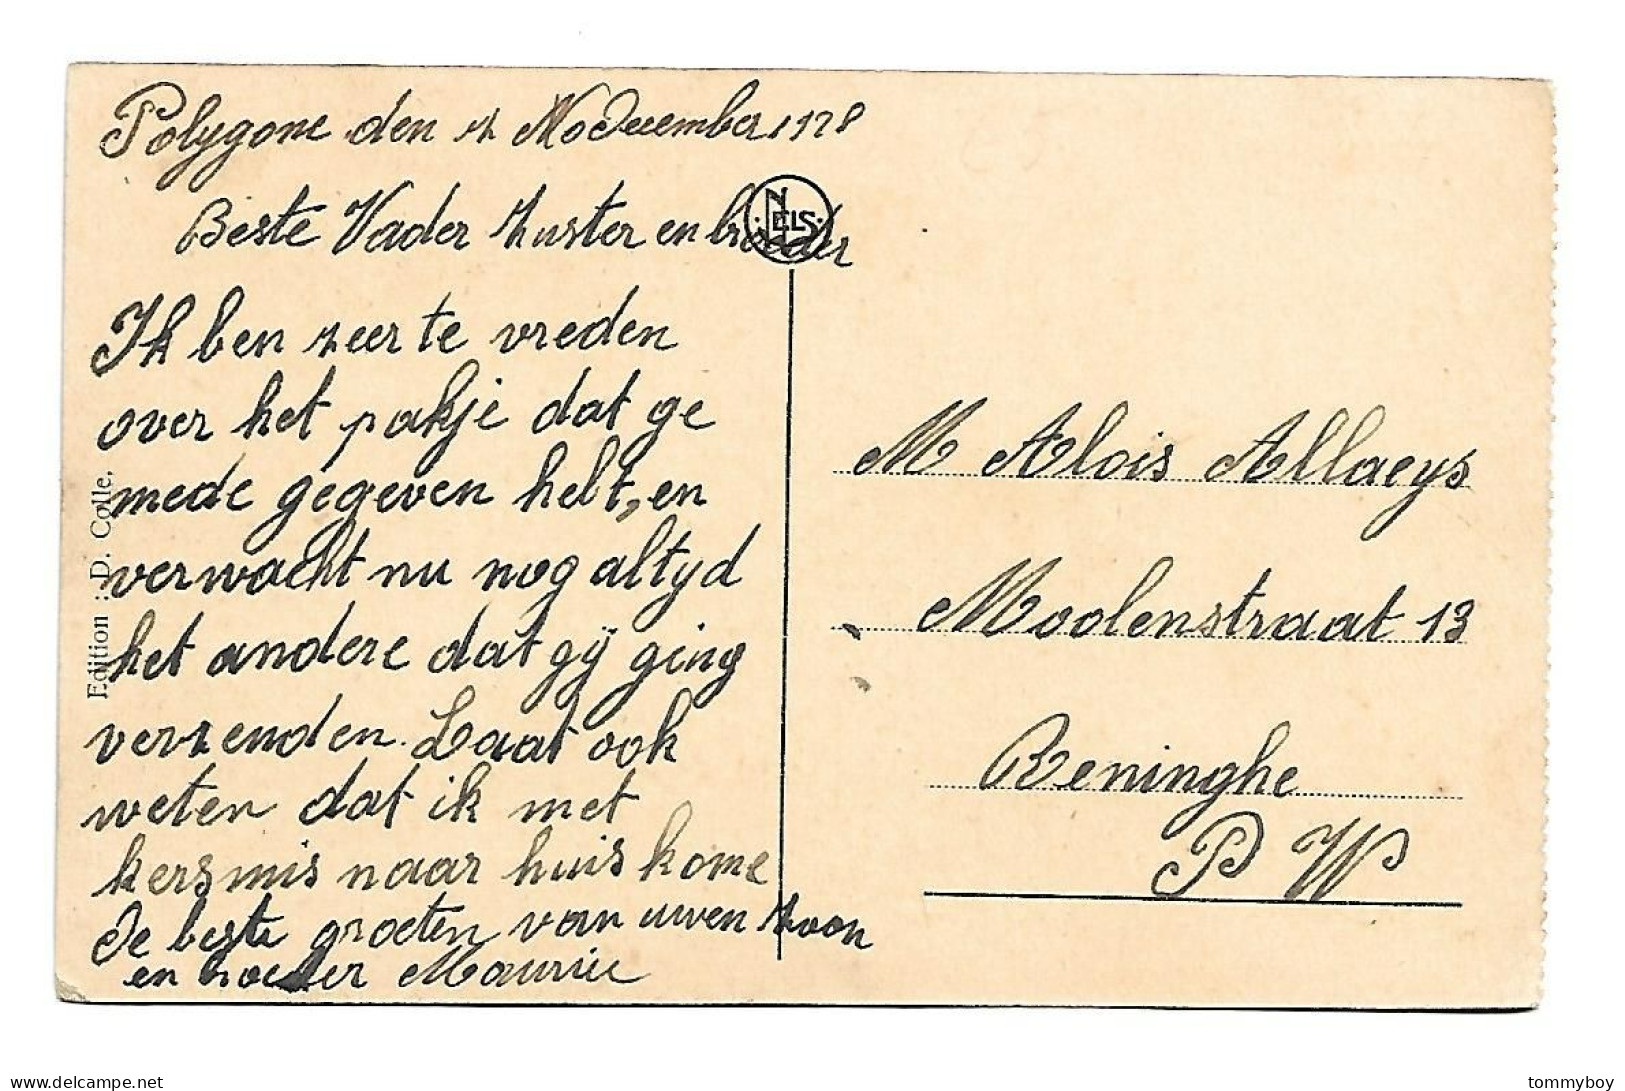 Polygone den 4 December 1928
Beste Vader Zuster en broeder
Ik ben zeer te vreden
over het pakje dat ge
mede gegeven hebt, en
verwacht nu nog altyd
het andere dat gÿ ging
verzenden. Laat ook
weten dat ik met
kersmis naar huis kome
De beste groeten van uwen zoon
en broeder Maurice
NELS
Edition : D. Colle.
M Alois Allaeys
Moolenstraat 13
Reninghe
P W
delcampe.net
tommyboy